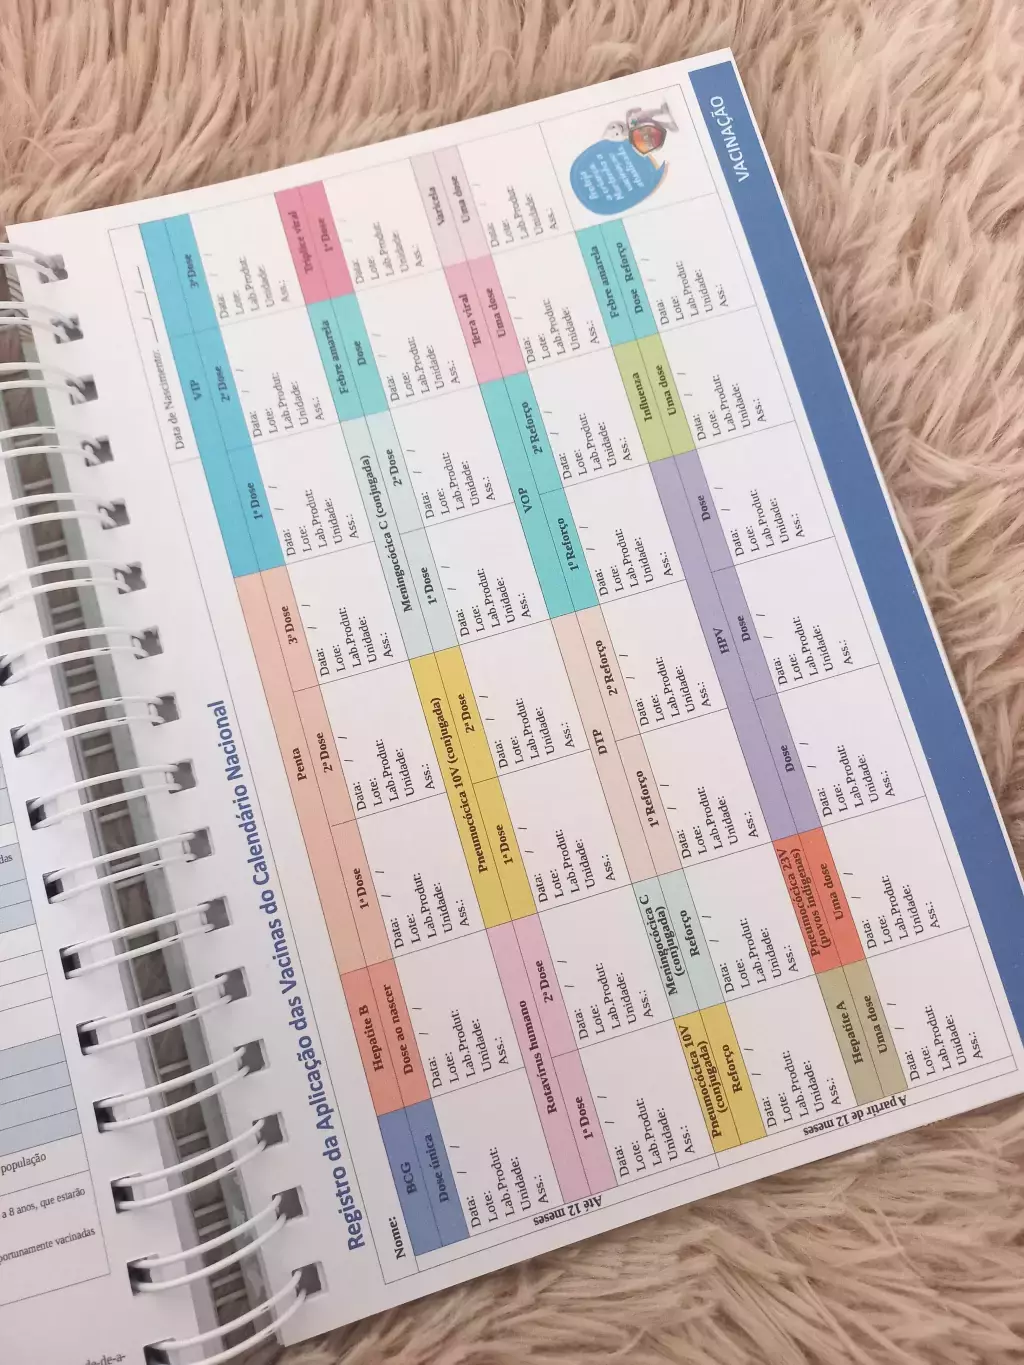 das
população
a 8 anos, que estarão
portunamente vacinadas
da-de-a-
Registro da Aplicação das Vacinas do Calendário Nacional
Nome: Data de Nascimento: __/__/__
Até 12 meses
BCG Hepatite B Penta VIP
Dose única Dose ao nascer 1ª Dose 2ª Dose 3ª Dose 1ª Dose 2ª Dose 3ª Dose
Data: / / Data: / / Data: / / Data: / / Data: / / Data: / / Data: / / Data: / /
Lote: Lote: Lote: Lote: Lote: Lote: Lote: Lote:
Lab.Produt: Lab.Produt: Lab.Produt: Lab.Produt: Lab.Produt: Lab.Produt: Lab.Produt: Lab.Produt:
Unidade: Unidade: Unidade: Unidade: Unidade: Unidade: Unidade: Unidade:
Ass.: Ass.: Ass.: Ass.: Ass.: Ass.: Ass.: Ass.:
Rotavírus humano Pneumocócica 10V (conjugada) Meningocócica C (conjugada) Febre amarela Tríplice viral
1ª Dose 2ª Dose 1ª Dose 2ª Dose 1ª Dose 2ª Dose Dose 1ª Dose
Data: / / Data: / / Data: / / Data: / / Data: / / Data: / / Data: / / Data: / /
Lote: Lote: Lote: Lote: Lote: Lote: Lote: Lote:
Lab.Produt: Lab.Produt: Lab.Produt: Lab.Produt: Lab.Produt: Lab.Produt: Lab.Produt: Lab.Produt:
Unidade: Unidade: Unidade: Unidade: Unidade: Unidade: Unidade: Unidade:
Ass.: Ass.: Ass.: Ass.: Ass.: Ass.: Ass.: Ass.:
A partir de 12 meses
Pneumocócica 10V (conjugada) Meningocócica C (conjugada) DTP VOP Tetra viral Varicela
Reforço Reforço 1º Reforço 2º Reforço 1º Reforço 2º Reforço Uma dose Uma dose
Data: / / Data: / / Data: / / Data: / / Data: / / Data: / / Data: / / Data: / /
Lote: Lote: Lote: Lote: Lote: Lote: Lote: Lote:
Lab.Produt: Lab.Produt: Lab.Produt: Lab.Produt: Lab.Produt: Lab.Produt: Lab.Produt: Lab.Produt:
Unidade: Unidade: Unidade: Unidade: Unidade: Unidade: Unidade: Unidade:
Ass.: Ass.: Ass.: Ass.: Ass.: Ass.: Ass.: Ass.:
Hepatite A Pneumocócica 23V (povos indígenas) HPV Influenza Febre amarela
Uma dose Uma dose Dose Dose Dose Uma dose Dose Reforço
Data: / / Data: / / Data: / / Data: / / Data: / / Data: / / Data: / /
Lote: Lote: Lote: Lote: Lote: Lote: Lote:
Lab.Produt: Lab.Produt: Lab.Produt: Lab.Produt: Lab.Produt: Lab.Produt: Lab.Produt:
Unidade: Unidade: Unidade: Unidade: Unidade: Unidade: Unidade:
Ass.: Ass.: Ass.: Ass.: Ass.: Ass.: Ass.:
VACINAÇÃO